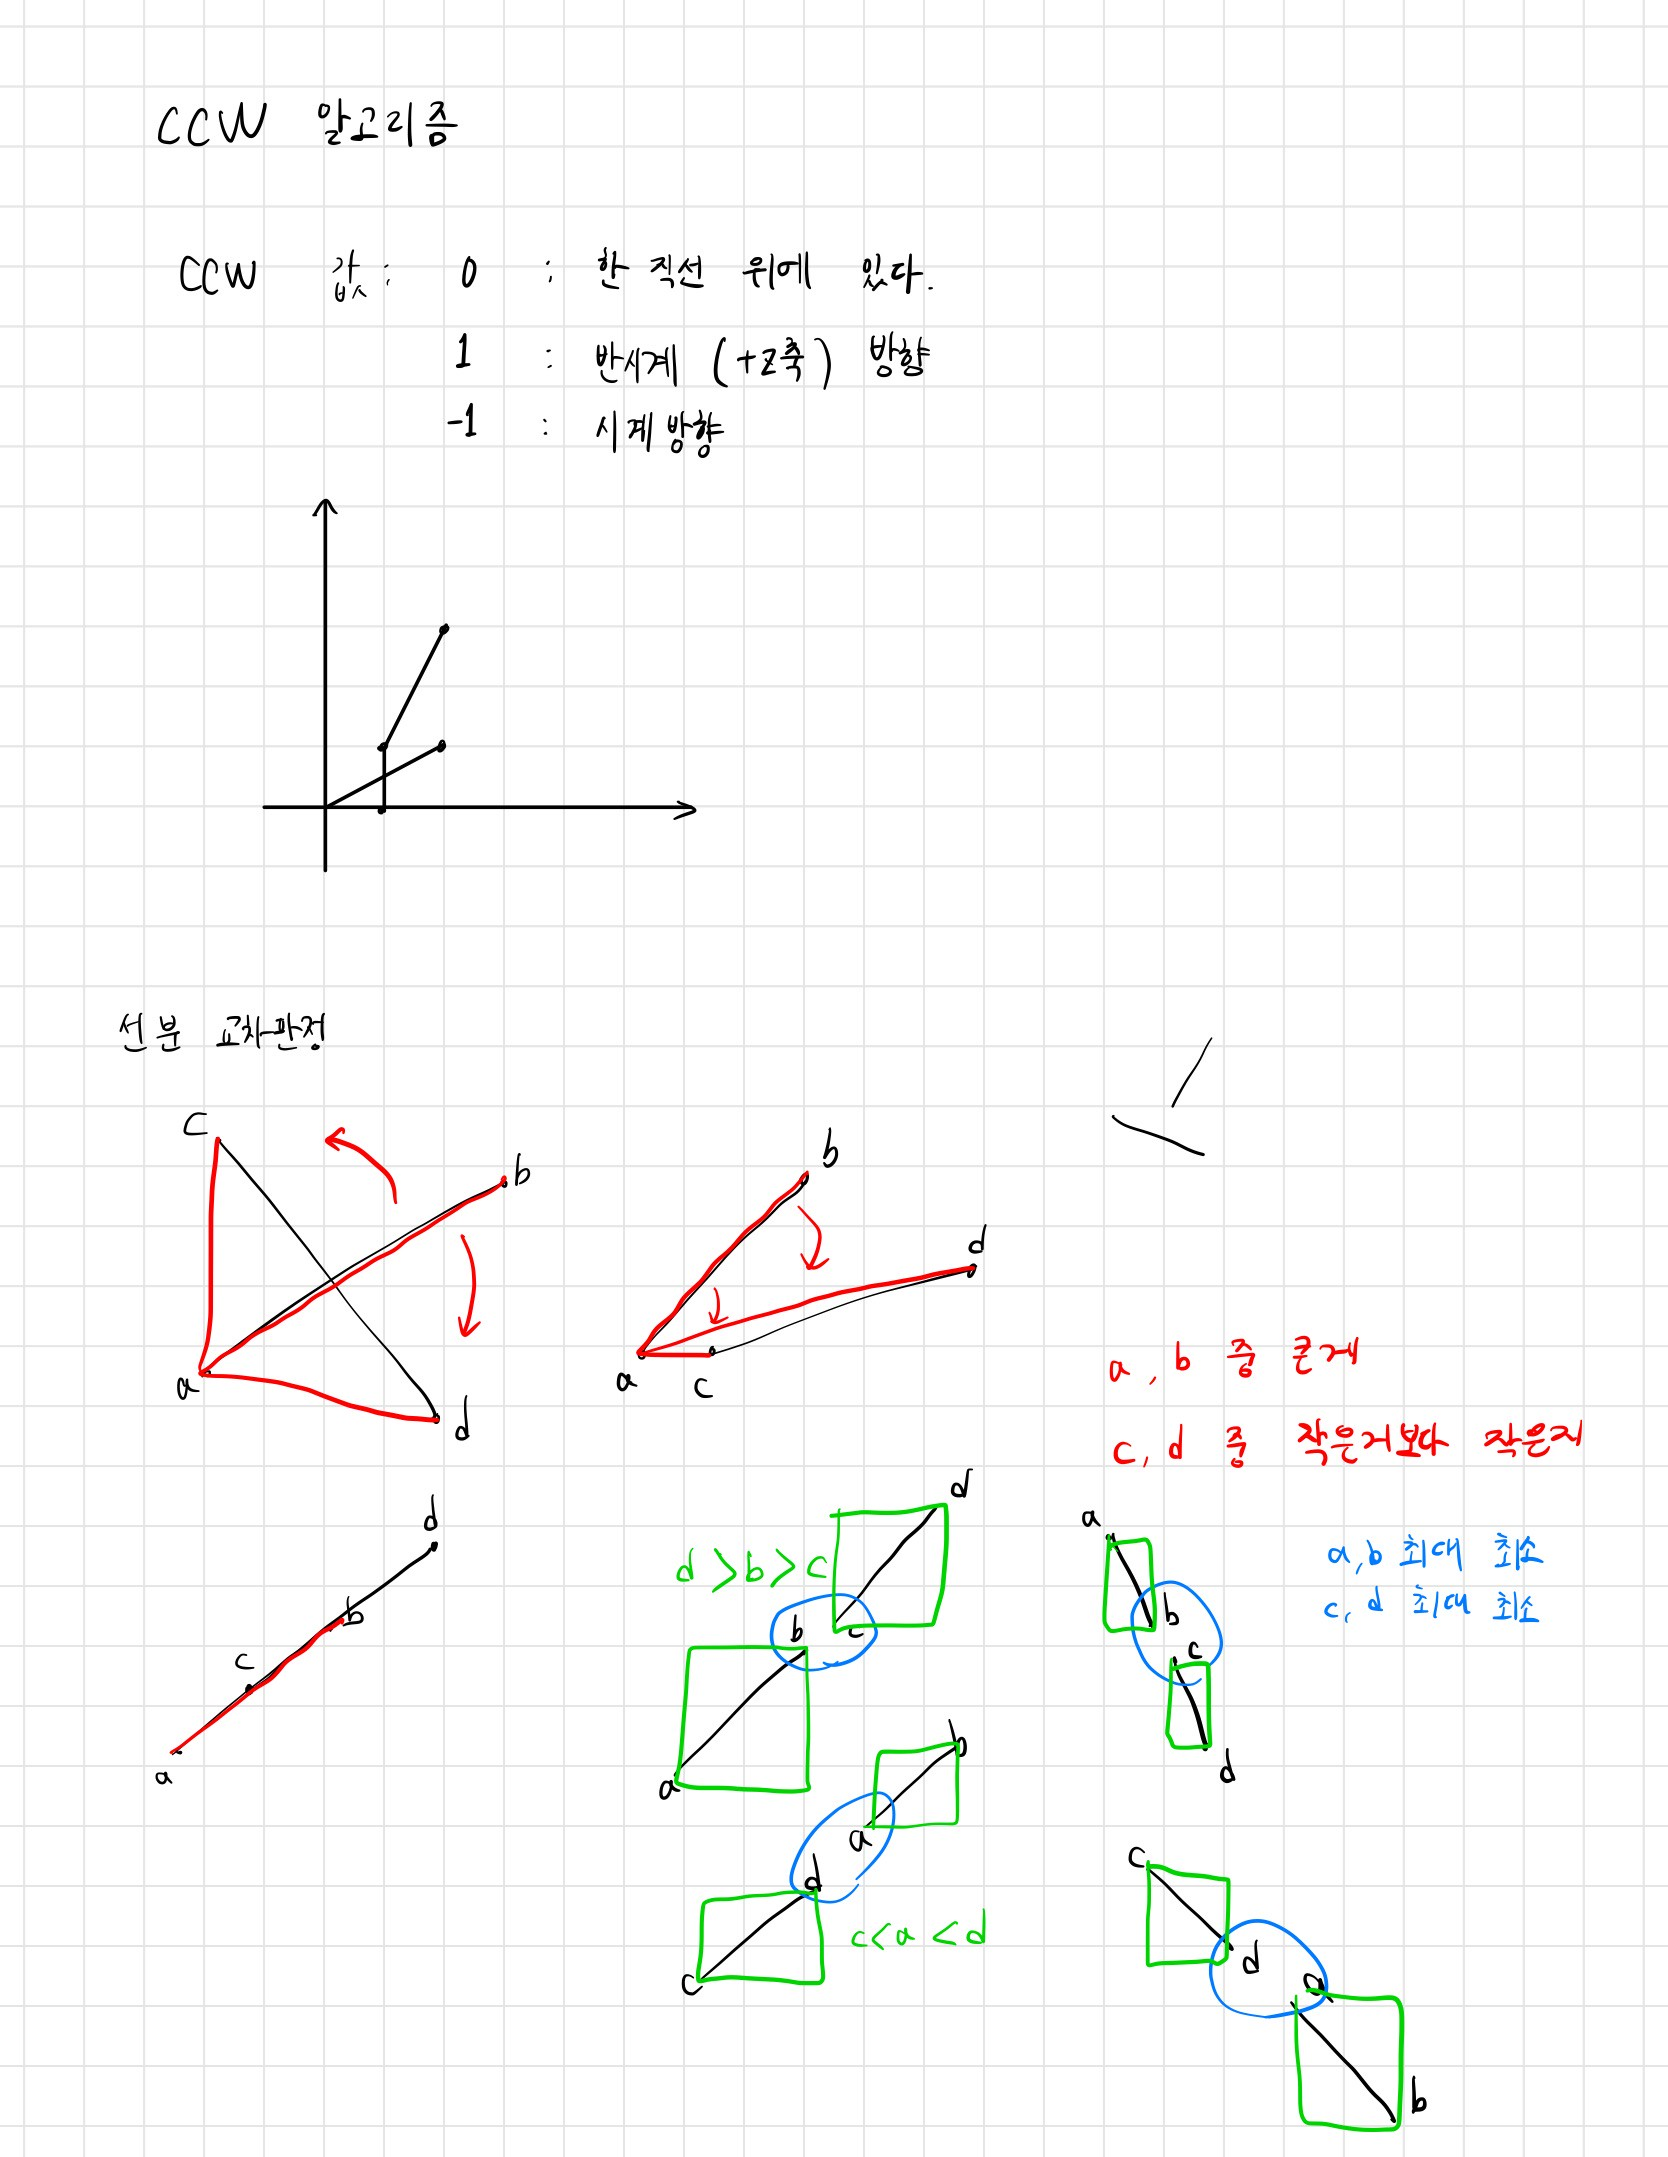 CCW 알고리즘
CCW 값 : 0 : 한 직선 위에 있다.
1 : 반시계 (+z축) 방향
-1 : 시계방향
선분 교차판정
c
b
a
d
b
d
a c
a, b 중 큰게
c, d 중 작은거보다 작은지
d
b
c
a
d
d > b > c
b c
a
a
b
c
d
a,b 최대 최소
c,d 최대 최소
b
a
d
c
c < a < d
c
d
a
b